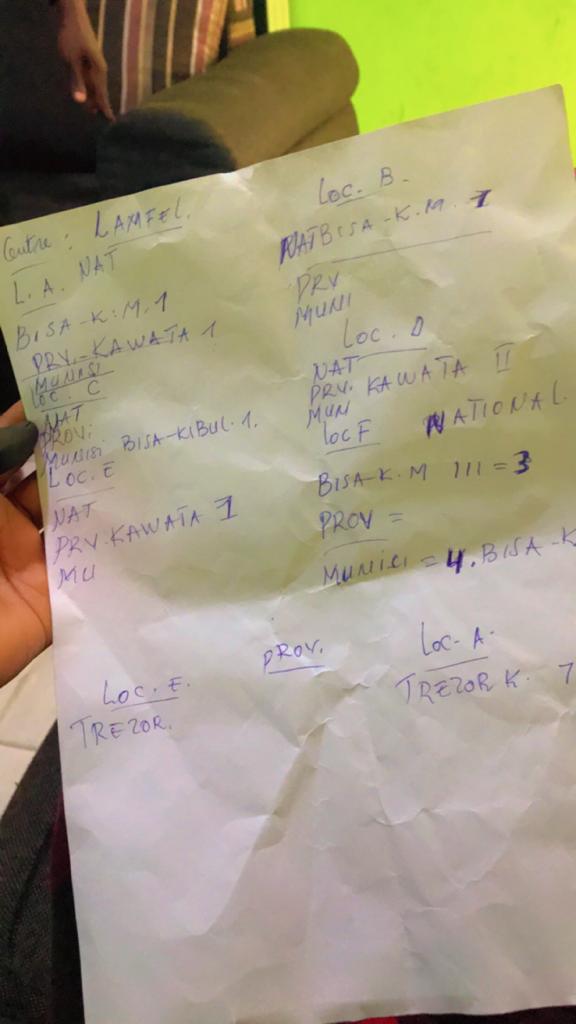 Centre : LAMFEL.
L. A. NAT
BISA-K.M. 1
PRV.-KAWATA 1
MUNISI
LOC. C
NAT
PROV:
MUNISI. BISA-KIBUL.1.
LOC. E
NAT
PRV.KAWATA 1
MU
LOC. B.
NAT BISA-K.M. 1
PRV
MUNI
LOC. D
NAT
PRV. KAWATA II
MUN
LOC F NATIONAL
BISA-K.M III = 3
PROV =
MUNICI = 4. BISA-K
PROV.
LOC. E.
TREZOR.
LOC-A.
TREZOR K. 7